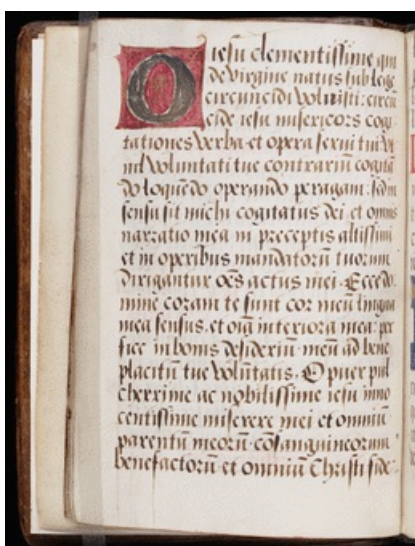 O iesu clementissime qui
de virgine natus sub lege
circuncidi voluisti: circũ
cide iesu misericors cogi
tationes verba et opera serui tui vt
nil voluntati tue contrariũ cogitã
do loquẽdo operando peragam: sed
sensu sit michi cogitatus dei et omnis
narratio mea in preceptis altissimi
et in operibus mandatorũ tuorum
dirigantur oẽs actus mei. Ecce do
mine coram te sunt cor meũ lingua
mea sensus. et oĩa interiora mea: per
fice in bonis desideriũ meũ ad bene
placitũ tue volũtatis. O puer pul
cherrime ac nobilissime iesu inno
centissime miserere mei et omniũ
parentũ meorũ cõsanguineorum
benefactorũ et omniũ Christi fide